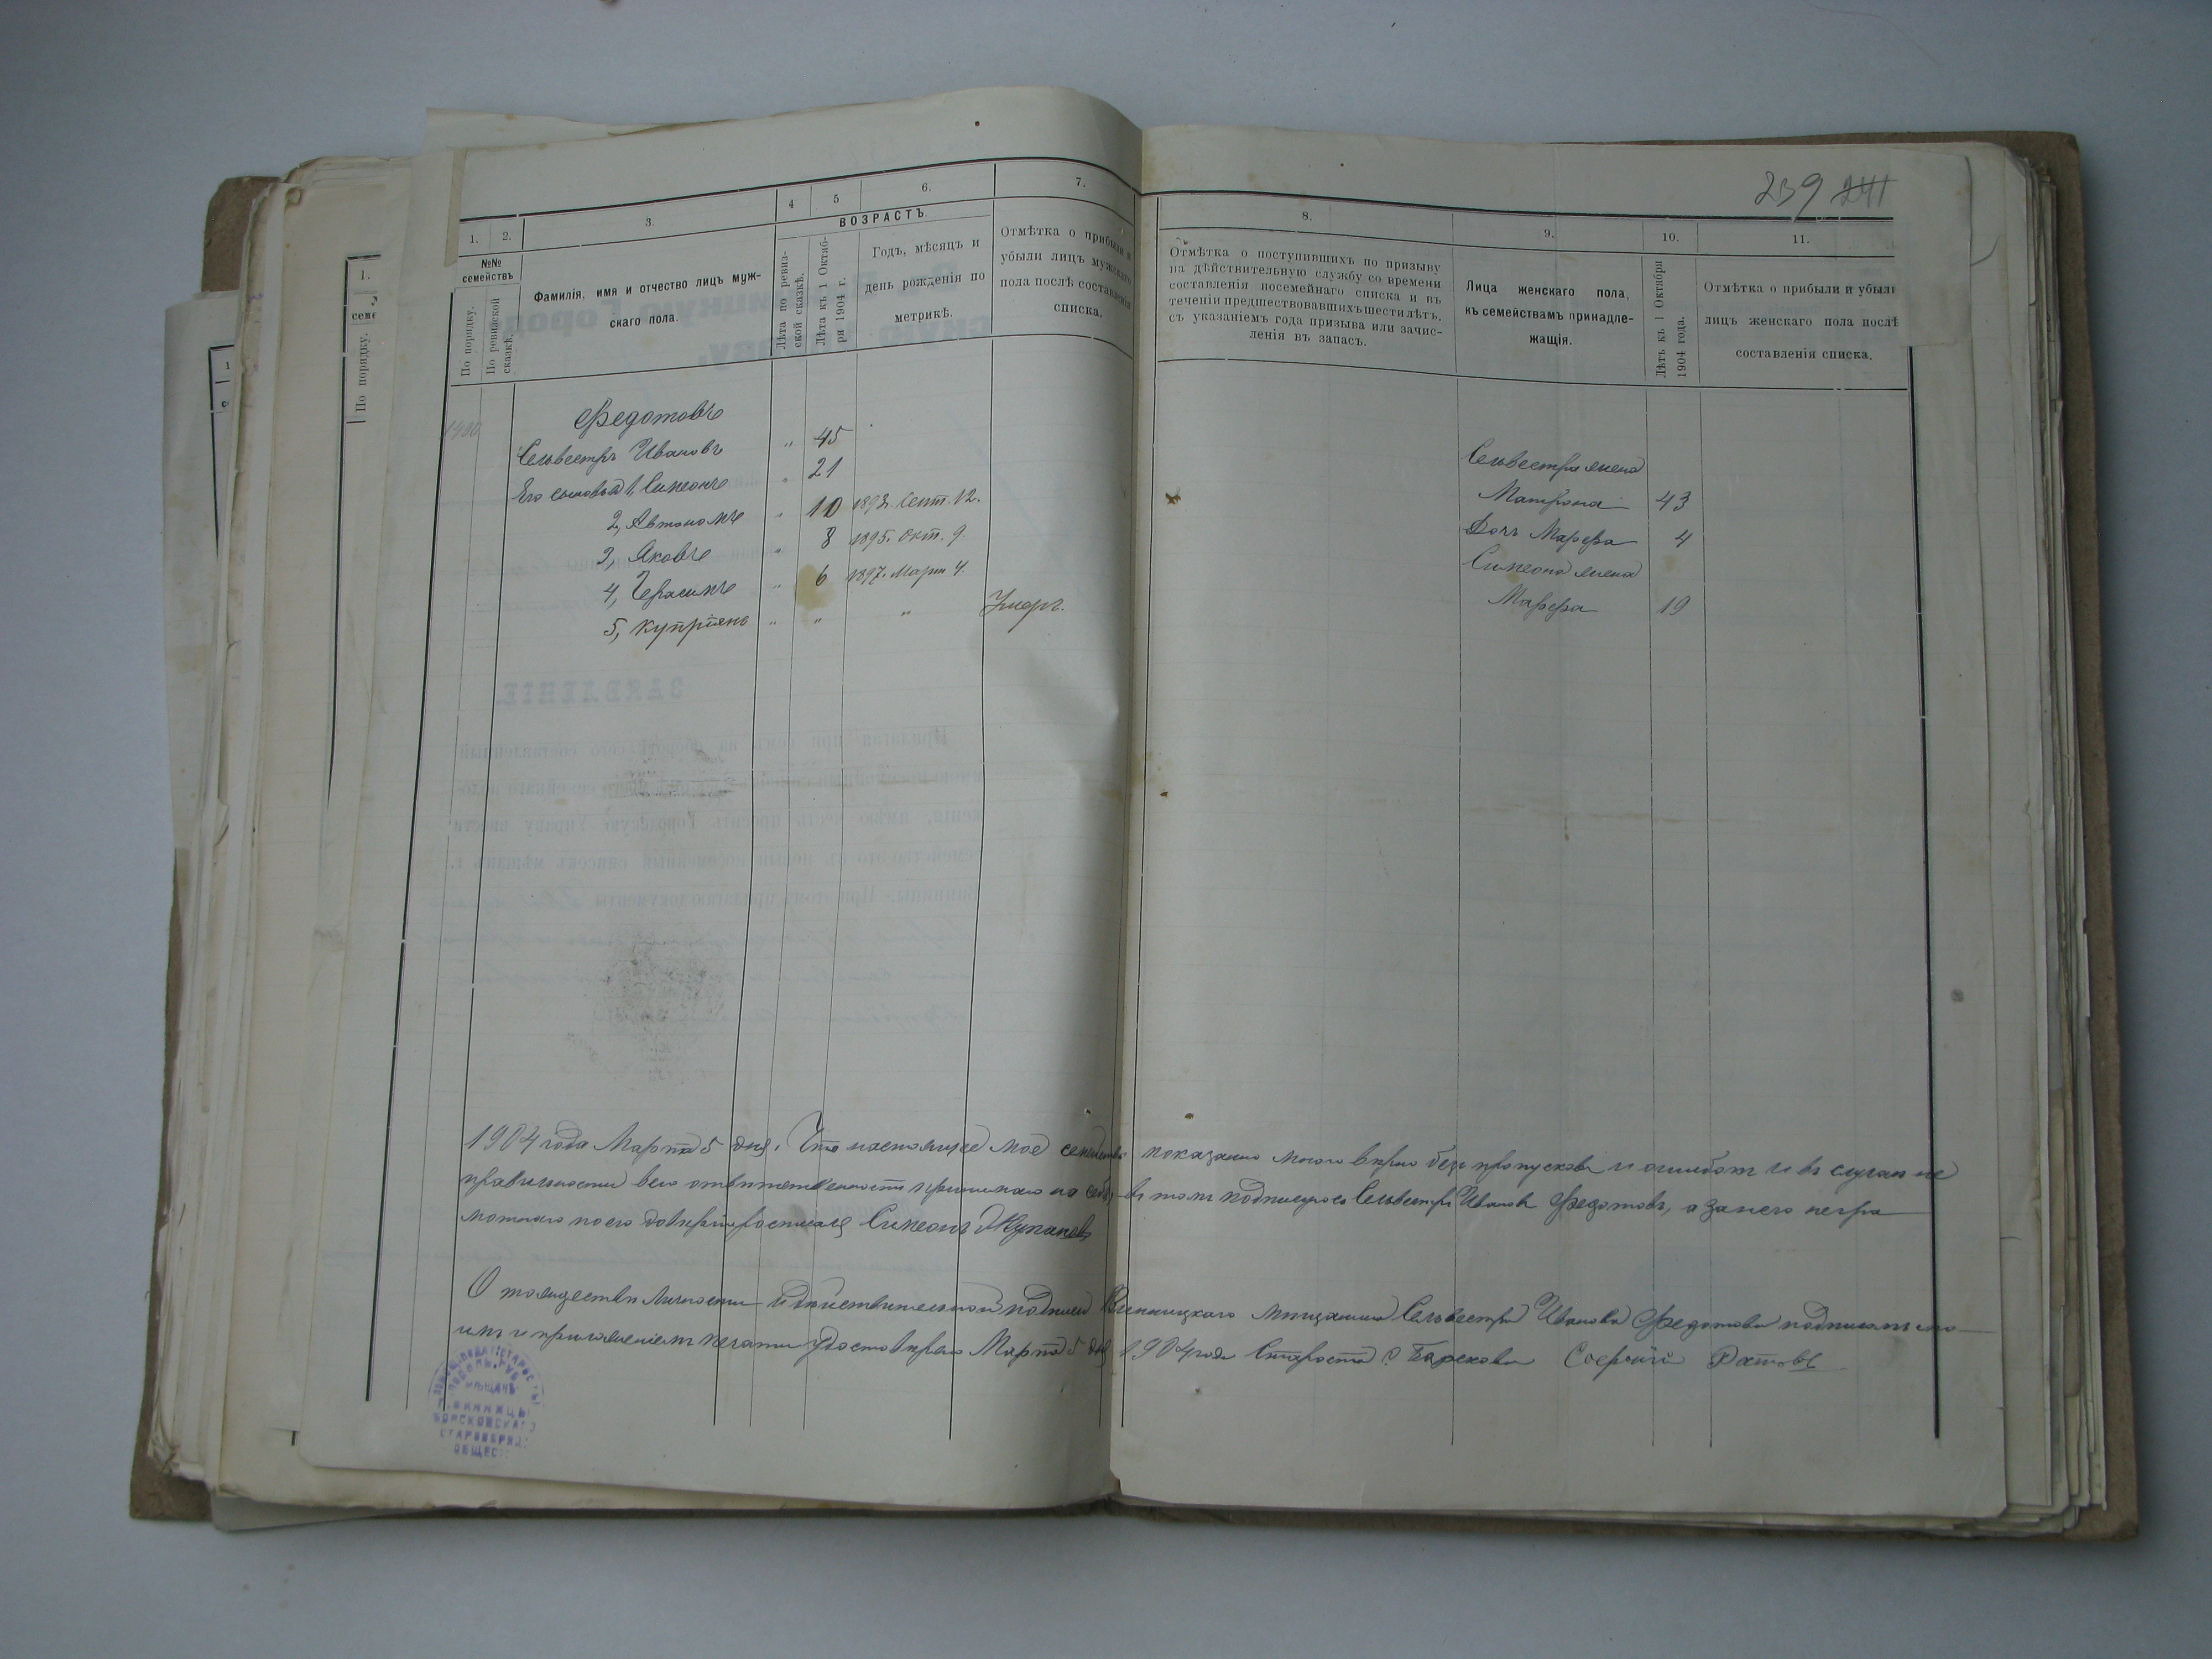 239 241
1. 2. 3. 4 5 6. 7. 8. 9. 10. 11.
ВОЗРАСТЪ.
№№ семействъ
По порядку.
По ревизской сказкѣ.
Фамилія, имя и отчество лицъ муж-
скаго пола.
Лѣта по ревиз-
ской сказкѣ.
Лѣта къ 1 Октяб-
ря 1904 г.
Годъ, мѣсяцъ и
день рожденія по
метрикѣ.
Отмѣтка о прибыли и
убыли лицъ мужскаго
пола послѣ составленія
списка.
Отмѣтка о поступившихъ по призыву
на дѣйствительную службу со времени
составленія посемейнаго списка и въ
теченіи предшествовавшихъ шести лѣтъ,
съ указаніемъ года призыва или зачис-
ленія въ запасъ.
Лица женскаго пола,
къ семействамъ принадле-
жащія.
Лѣтъ къ 1 Октября
1904 года.
Отмѣтка о прибыли и убыли
лицъ женскаго пола послѣ
составленія списка.
1400 Федотовъ
Сельвестръ Ивановъ " 45
Его сыновья 1, Симеонъ " 21
2, Автономъ " 10 1893. Сент. 12.
3, Яковъ " 8 1895. Окт. 9.
4, Герасимъ " 6 1897. Марта 4.
5, Купріянъ " " " Умеръ.
Сельвестра жена
Матрона 43
Дочь Марфа 4
Симеона жена
Марфа 19
1904 года Марта 5 дня. Что настоящее мое семейство показано мною вѣрно безъ пропусковъ и ошибокъ и въ случаи не
правильности всю отвѣтственность принимаю на себя, въ томъ подписуюсь Сельвестръ Ивановъ Федотовъ, а за него негра
мотнаго по его довѣрію росписался Симеонъ
О тождествѣ личности и дѣйствительной подписи Винницкаго мѣщанина Сельвестра Иванова Федотова подписомъ мо
имъ и приложеніемъ печати удостовѣряю Марта 5 дня 1904 года Староста
СТАРОСТЫ
ПОДОЛЬ. ГУБ.
МѢЩАНЪ
Г. ВИННИЦЫ
БОРСКОВСКАГО
СТАРООБРЯД.
ОБЩЕС